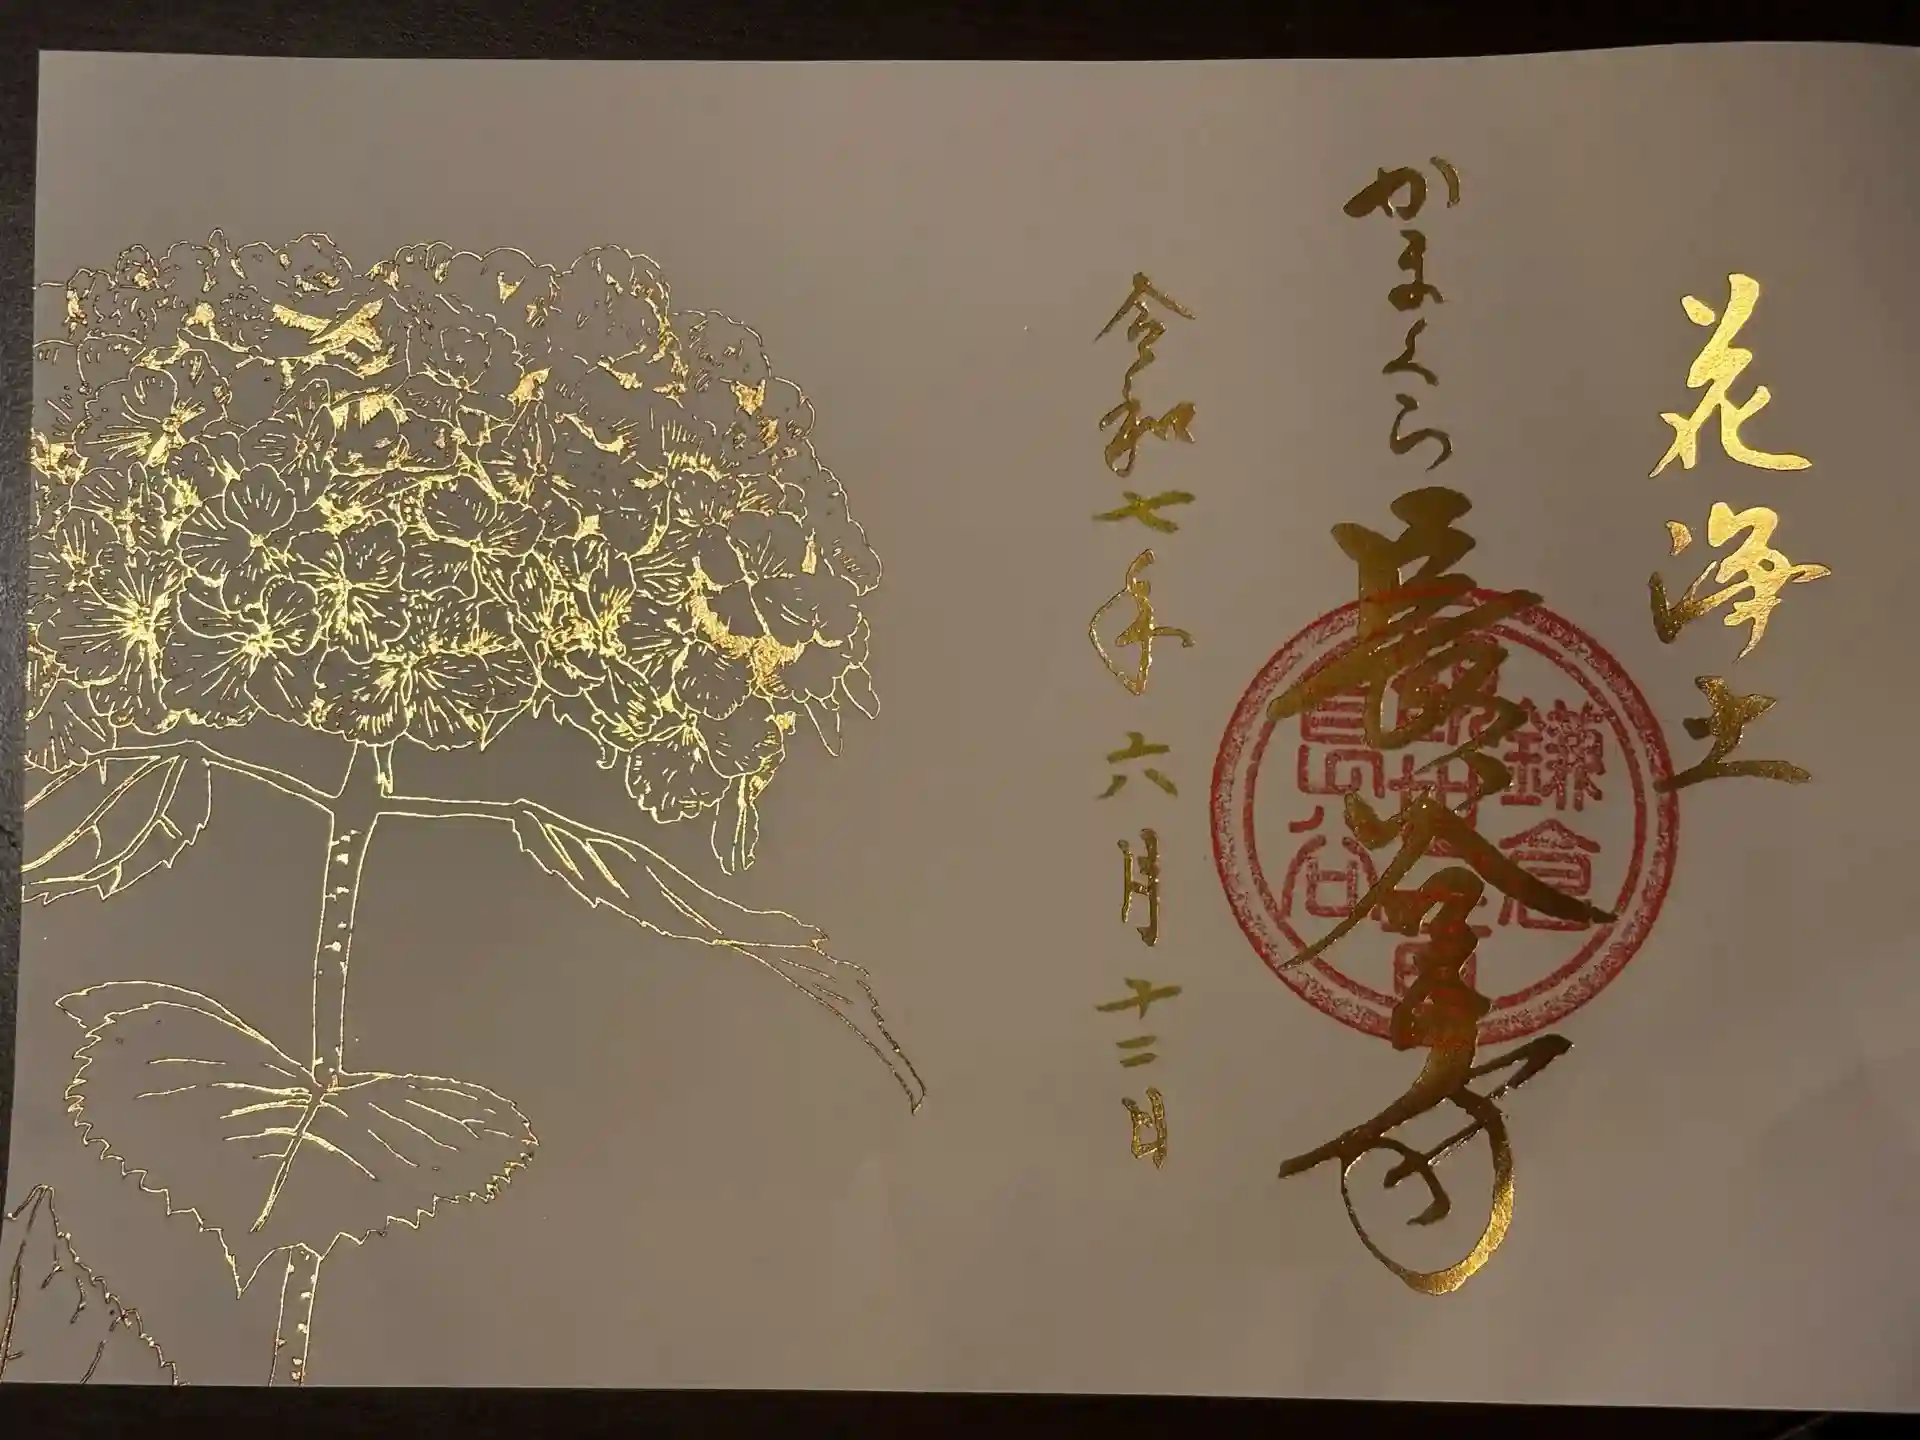 花浄土
かまくら
長谷寺
令和七年六月十二日
鎌倉
長谷